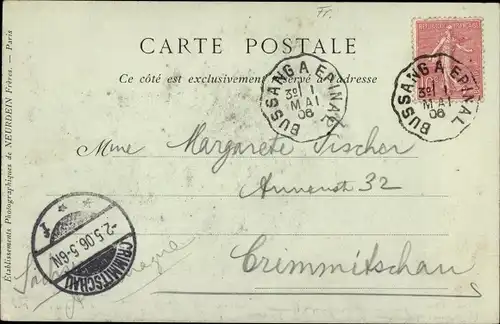 Fr.
CARTE POSTALE
Ce côté est exclusivement réservé à l'adresse
BUSSANG A EPINAL
3º / 1
MAI
06
BUSSANG A EPINAL
3º / 1
MAI
06
Mme Margarete Fischer
Annenstr 32
Crimmitschau
Allemagne
CRIMMITSCHAU
-2.5.06.5-6N.
Établissements Photographiques de NEURDEIN Frères. — Paris